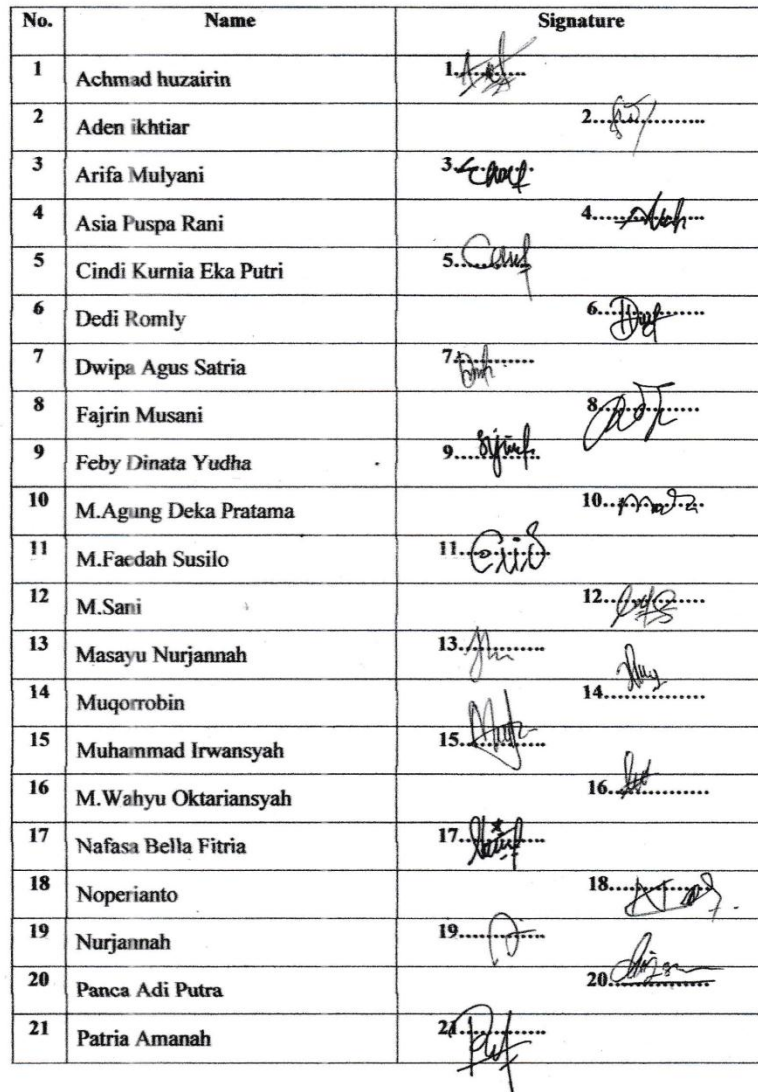 No. Name Signature
1 Achmad huzairin 1..........
2 Aden ikhtiar 2..........
3 Arifa Mulyani 3..........
4 Asia Puspa Rani 4..........
5 Cindi Kurnia Eka Putri 5..........
6 Dedi Romly 6..........
7 Dwipa Agus Satria 7..........
8 Fajrin Musani 8..........
9 Feby Dinata Yudha 9..........
10 M.Agung Deka Pratama 10..........
11 M.Faedah Susilo 11..........
12 M.Sani 12..........
13 Masayu Nurjannah 13..........
14 Muqorrobin 14..........
15 Muhammad Irwansyah 15..........
16 M.Wahyu Oktariansyah 16..........
17 Nafasa Bella Fitria 17..........
18 Noperianto 18..........
19 Nurjannah 19..........
20 Panca Adi Putra 20..........
21 Patria Amanah 21..........